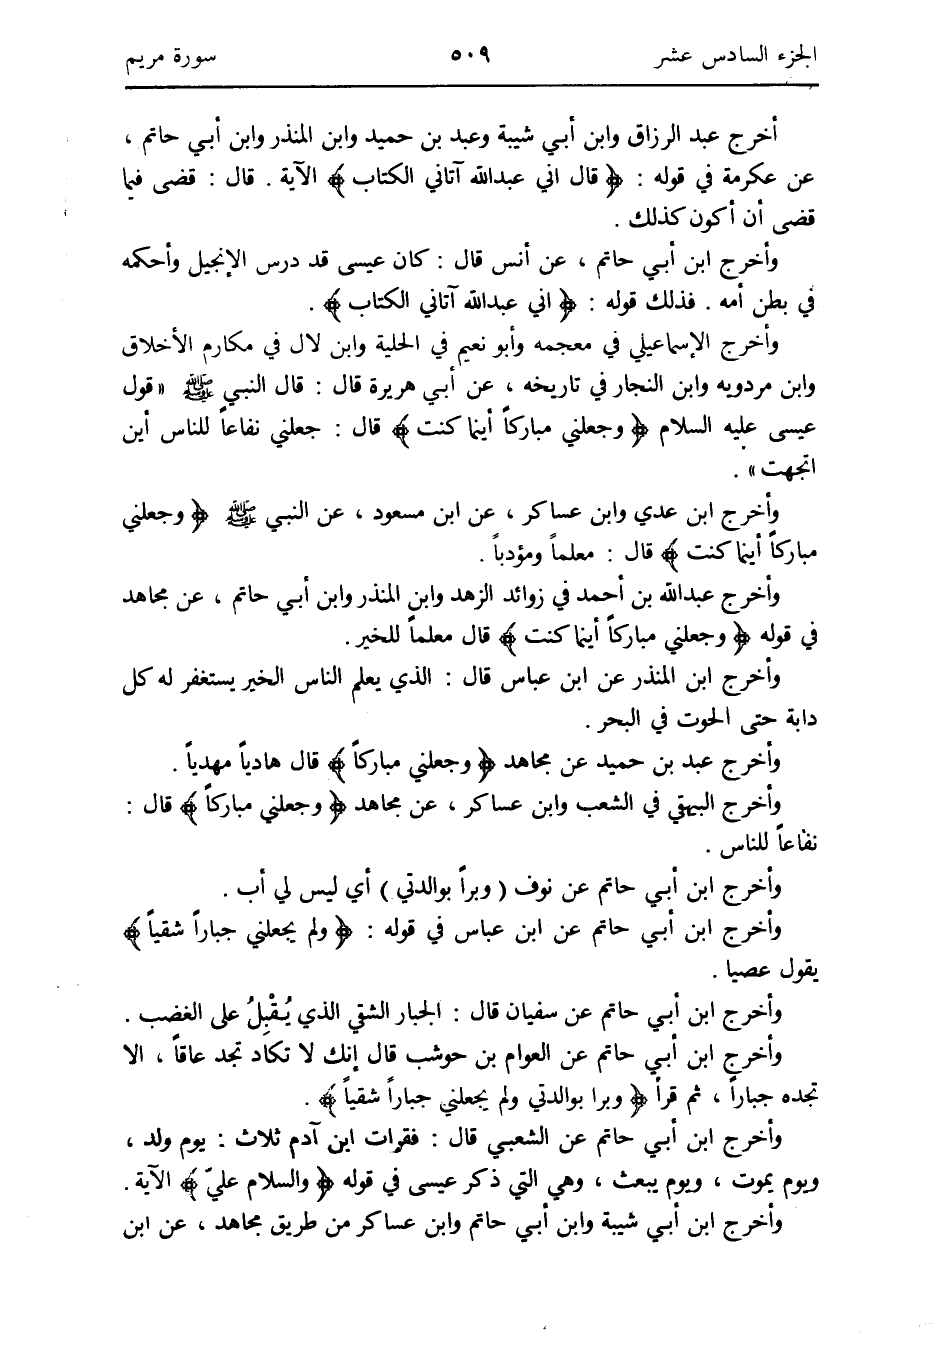 الجزء السادس عشر ٥٠٩ سورة مريم
أخرج عبد الرزاق وابن أبي شيبة وعبد بن حميد وابن المنذر وابن أبي حاتم ،
عن عكرمة في قوله : ﴿ قال اني عبدالله آتاني الكتاب ﴾ الآية . قال : قضى فيما
قضى أن أكون كذلك .
وأخرج ابن أبي حاتم ، عن أنس قال : كان عيسى قد درس الإنجيل وأحكمه
في بطن أمه . فذلك قوله : ﴿ اني عبدالله آتاني الكتاب ﴾ .
وأخرج الإسماعيلي في معجمه وأبو نعيم في الحلية وابن لال في مكارم الأخلاق
وابن مردويه وابن النجار في تاريخه ، عن أبي هريرة قال : قال النبي ﷺ « قول
عيسى عليه السلام ﴿ وجعلني مباركاً أينما كنت ﴾ قال : جعلني نفاعاً للناس أين
اتجهت » .
وأخرج ابن عدي وابن عساكر ، عن ابن مسعود ، عن النبي ﷺ ﴿ وجعلني
مباركاً أينما كنت ﴾ قال : معلماً ومؤدباً .
وأخرج عبدالله بن أحمد في زوائد الزهد وابن المنذر وابن أبي حاتم ، عن مجاهد
في قوله ﴿ وجعلني مباركاً أينما كنت ﴾ قال معلماً للخير .
وأخرج ابن المنذر عن ابن عباس قال : الذي يعلم الناس الخير يستغفر له كل
دابة حتى الحوت في البحر .
وأخرج عبد بن حميد عن مجاهد ﴿ وجعلني مباركاً ﴾ قال هادياً مهدياً .
وأخرج البيهقي في الشعب وابن عساكر ، عن مجاهد ﴿ وجعلني مباركاً ﴾ قال :
نفاعاً للناس .
وأخرج ابن أبي حاتم عن نوف ( وبراً بوالدتي ) أي ليس لي أب .
وأخرج ابن أبي حاتم عن ابن عباس في قوله : ﴿ ولم يجعلني جباراً شقياً ﴾
يقول عصيا .
وأخرج ابن أبي حاتم عن سفيان قال : الجبار الشقي الذي يُقْبِلُ على الغضب .
وأخرج ابن أبي حاتم عن العوام بن حوشب قال إنك لا تكاد تجد عاقاً ، الا
تجده جباراً ، ثم قرأ ﴿ وبرا بوالدتي ولم يجعلني جباراً شقياً ﴾ .
وأخرج ابن أبي حاتم عن الشعبي قال : فقرات ابن آدم ثلاث : يوم ولد ،
ويوم يموت ، ويوم يبعث ، وهي التي ذكر عيسى في قوله ﴿ والسلام عليّ ﴾ الآية .
وأخرج ابن أبي شيبة وابن أبي حاتم وابن عساكر من طريق مجاهد ، عن ابن